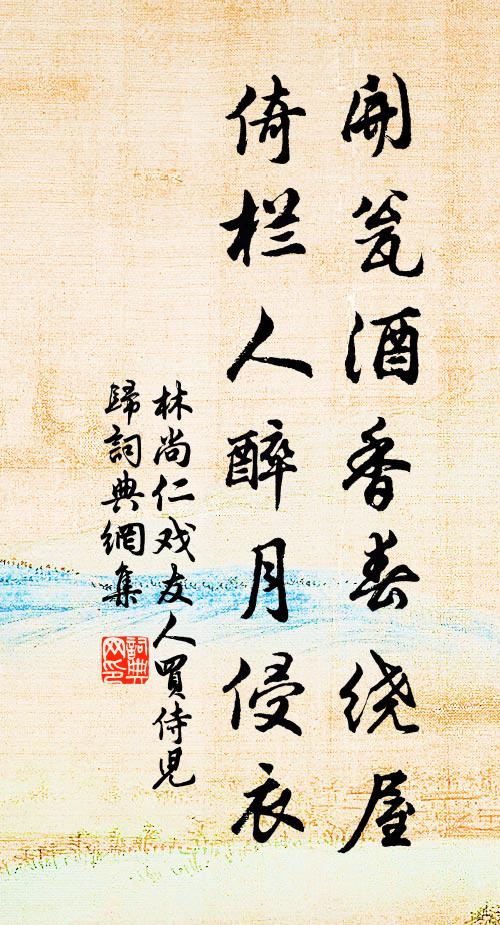 開瓮酒香春绕屋
倚栏人醉月侵衣
林尚仁戏友人買侍児
歸詞典網集
詞典
网印